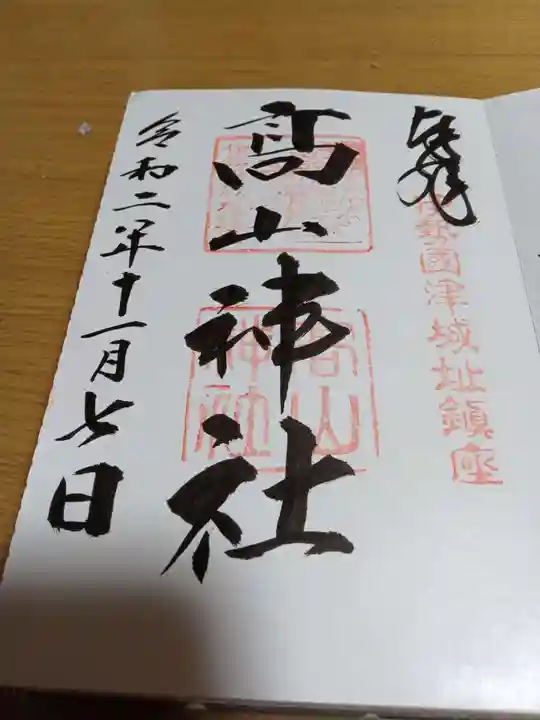 奉拝
伊勢國津城址鎮座
髙山神社
高山神社
令和二年十一月七日